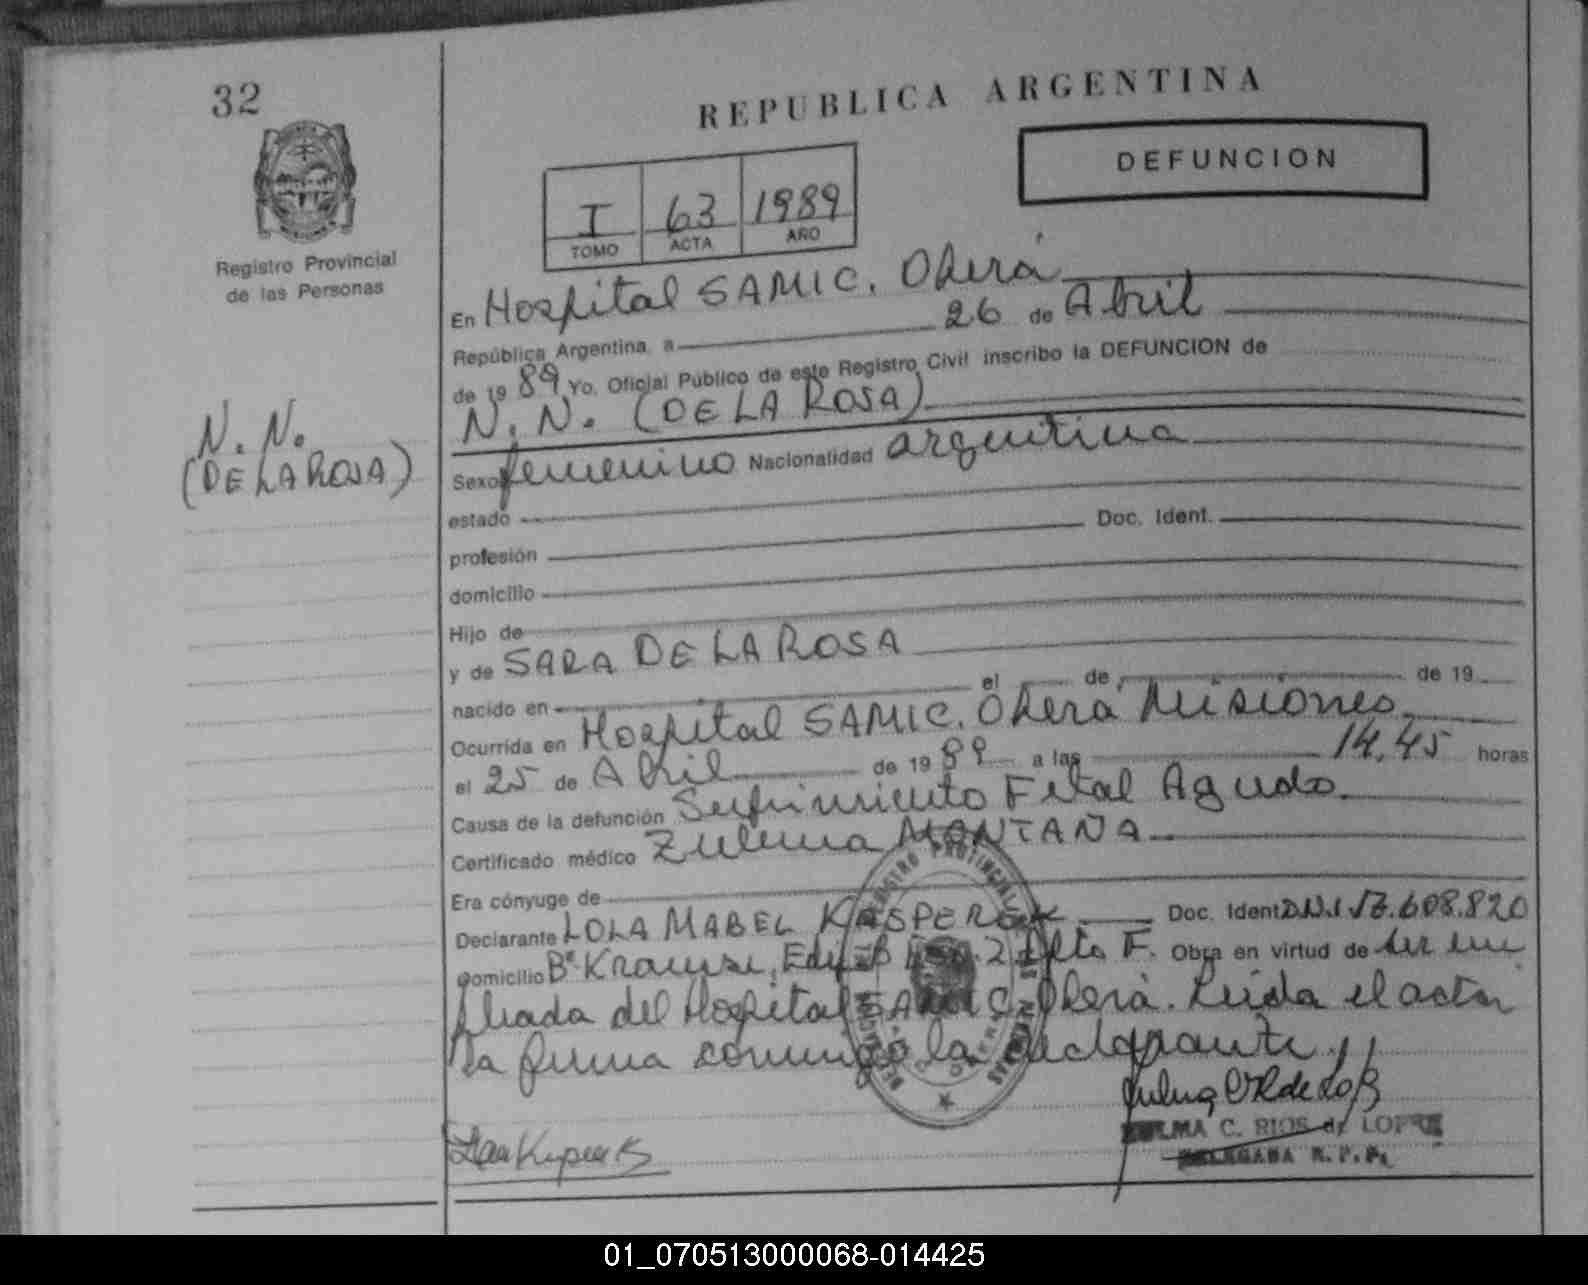 32
REPUBLICA ARGENTINA
DEFUNCION
I 63 1989
TOMO ACTA AÑO
Registro Provincial
de las Personas
N. N.
(DE LA ROSA)
En Hospital SAMIC. Oberá
República Argentina, a 26 de Abril
de 19 89 Yo, Oficial Público de este Registro Civil inscribo la DEFUNCION de
N. N. (DE LA ROSA)
Sexo femenino Nacionalidad argentina
estado
profesión Doc. Ident.
domicilio
Hijo de
y de SARA DE LA ROSA
nacido en el de de 19
Ocurrida en Hospital SAMIC. Oberá Misiones
el 25 de Abril de 19 89 a las 14,45 horas
Causa de la defunción Sufrimiento Fetal Agudo.
Certificado médico Zulema MONTAÑA
Era cónyuge de
Declarante LOLA MABEL KASPEREK Doc. Ident D.N.I. .608.820
Domicilio Bº Krause, Edif. B 2 Dpto F. Obra en virtud de ser em
pleada del Hospital SAMIC Oberá. Leída el acta
la firma conmigo la declarante.
ZULMA C. RIOS de LOPEZ
DELEGADA R. P. P.
REGISTRO PROVINCIAL DE LAS PERSONAS
01_070513000068-014425